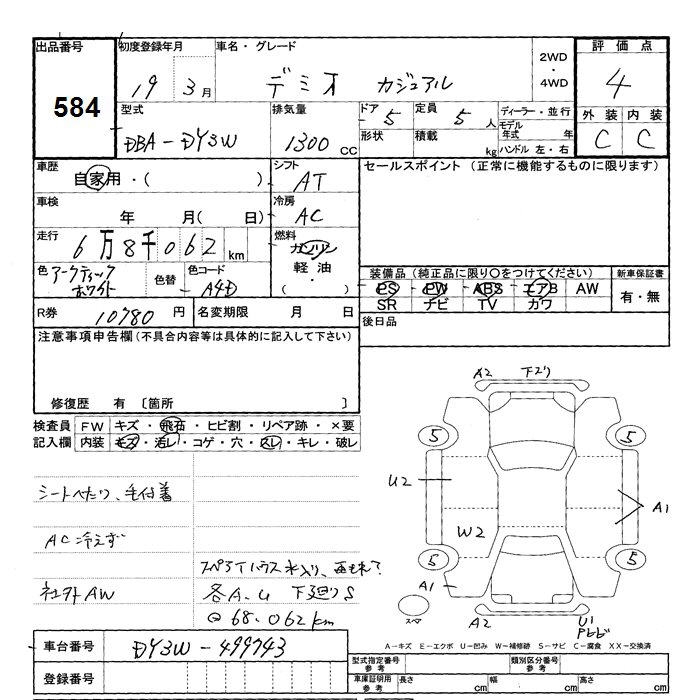 出品番号
584
初度登録年月
19 3 月
車名・グレード
デミオ カジュアル
2WD
・
4WD
評価点
4
外装 内装
C C
型式
DBA-DY3W
排気量
1300 CC
ドア 5
形状
定員 5 人
積載 kg
ディーラー・並行
モデル年式 年
ハンドル 左・右
車歴
自家用・( )
シフト
AT
セールスポイント (正常に機能するものに限ります)
車検
年 月( 日)
冷房
AC
走行
6万8千062 km
燃料
ガソリン
軽油
・
( )
色 アークティックホワイト
色替
色コード
A4D
装備品 (純正品に限り○をつけてください)
PS PW ABS エアB AW
SR ナビ TV カワ
新車保証書
有・無
R券 10780 円
名変期限 月 日
後日品
注意事項申告欄 (不具合内容等は具体的に記入して下さい)
修復歴 有 〔箇所 〕
検査員記入欄
FW キズ・飛石・ヒビ割・リペア跡・×要
内装 キズ・汚レ・コゲ・穴・スレ・キレ・破レ
シートへたり、毛付着
AC冷えず
社外AW
スペアタイハウス水入り、
各A.U 下廻りS
@68.062km
A2 下スリ
5 5
U2
A1
W2
5 5
A1
スペア
A2
U1
車台番号
DY3W-499743
登録番号
A-キズ E-エクボ U-凹み W-補修跡 S-サビ C-腐食 XX-交換済
型式指定番号 参考
類別区分番号 参考
車庫証明用 参考
長さ cm
幅 cm
高さ cm